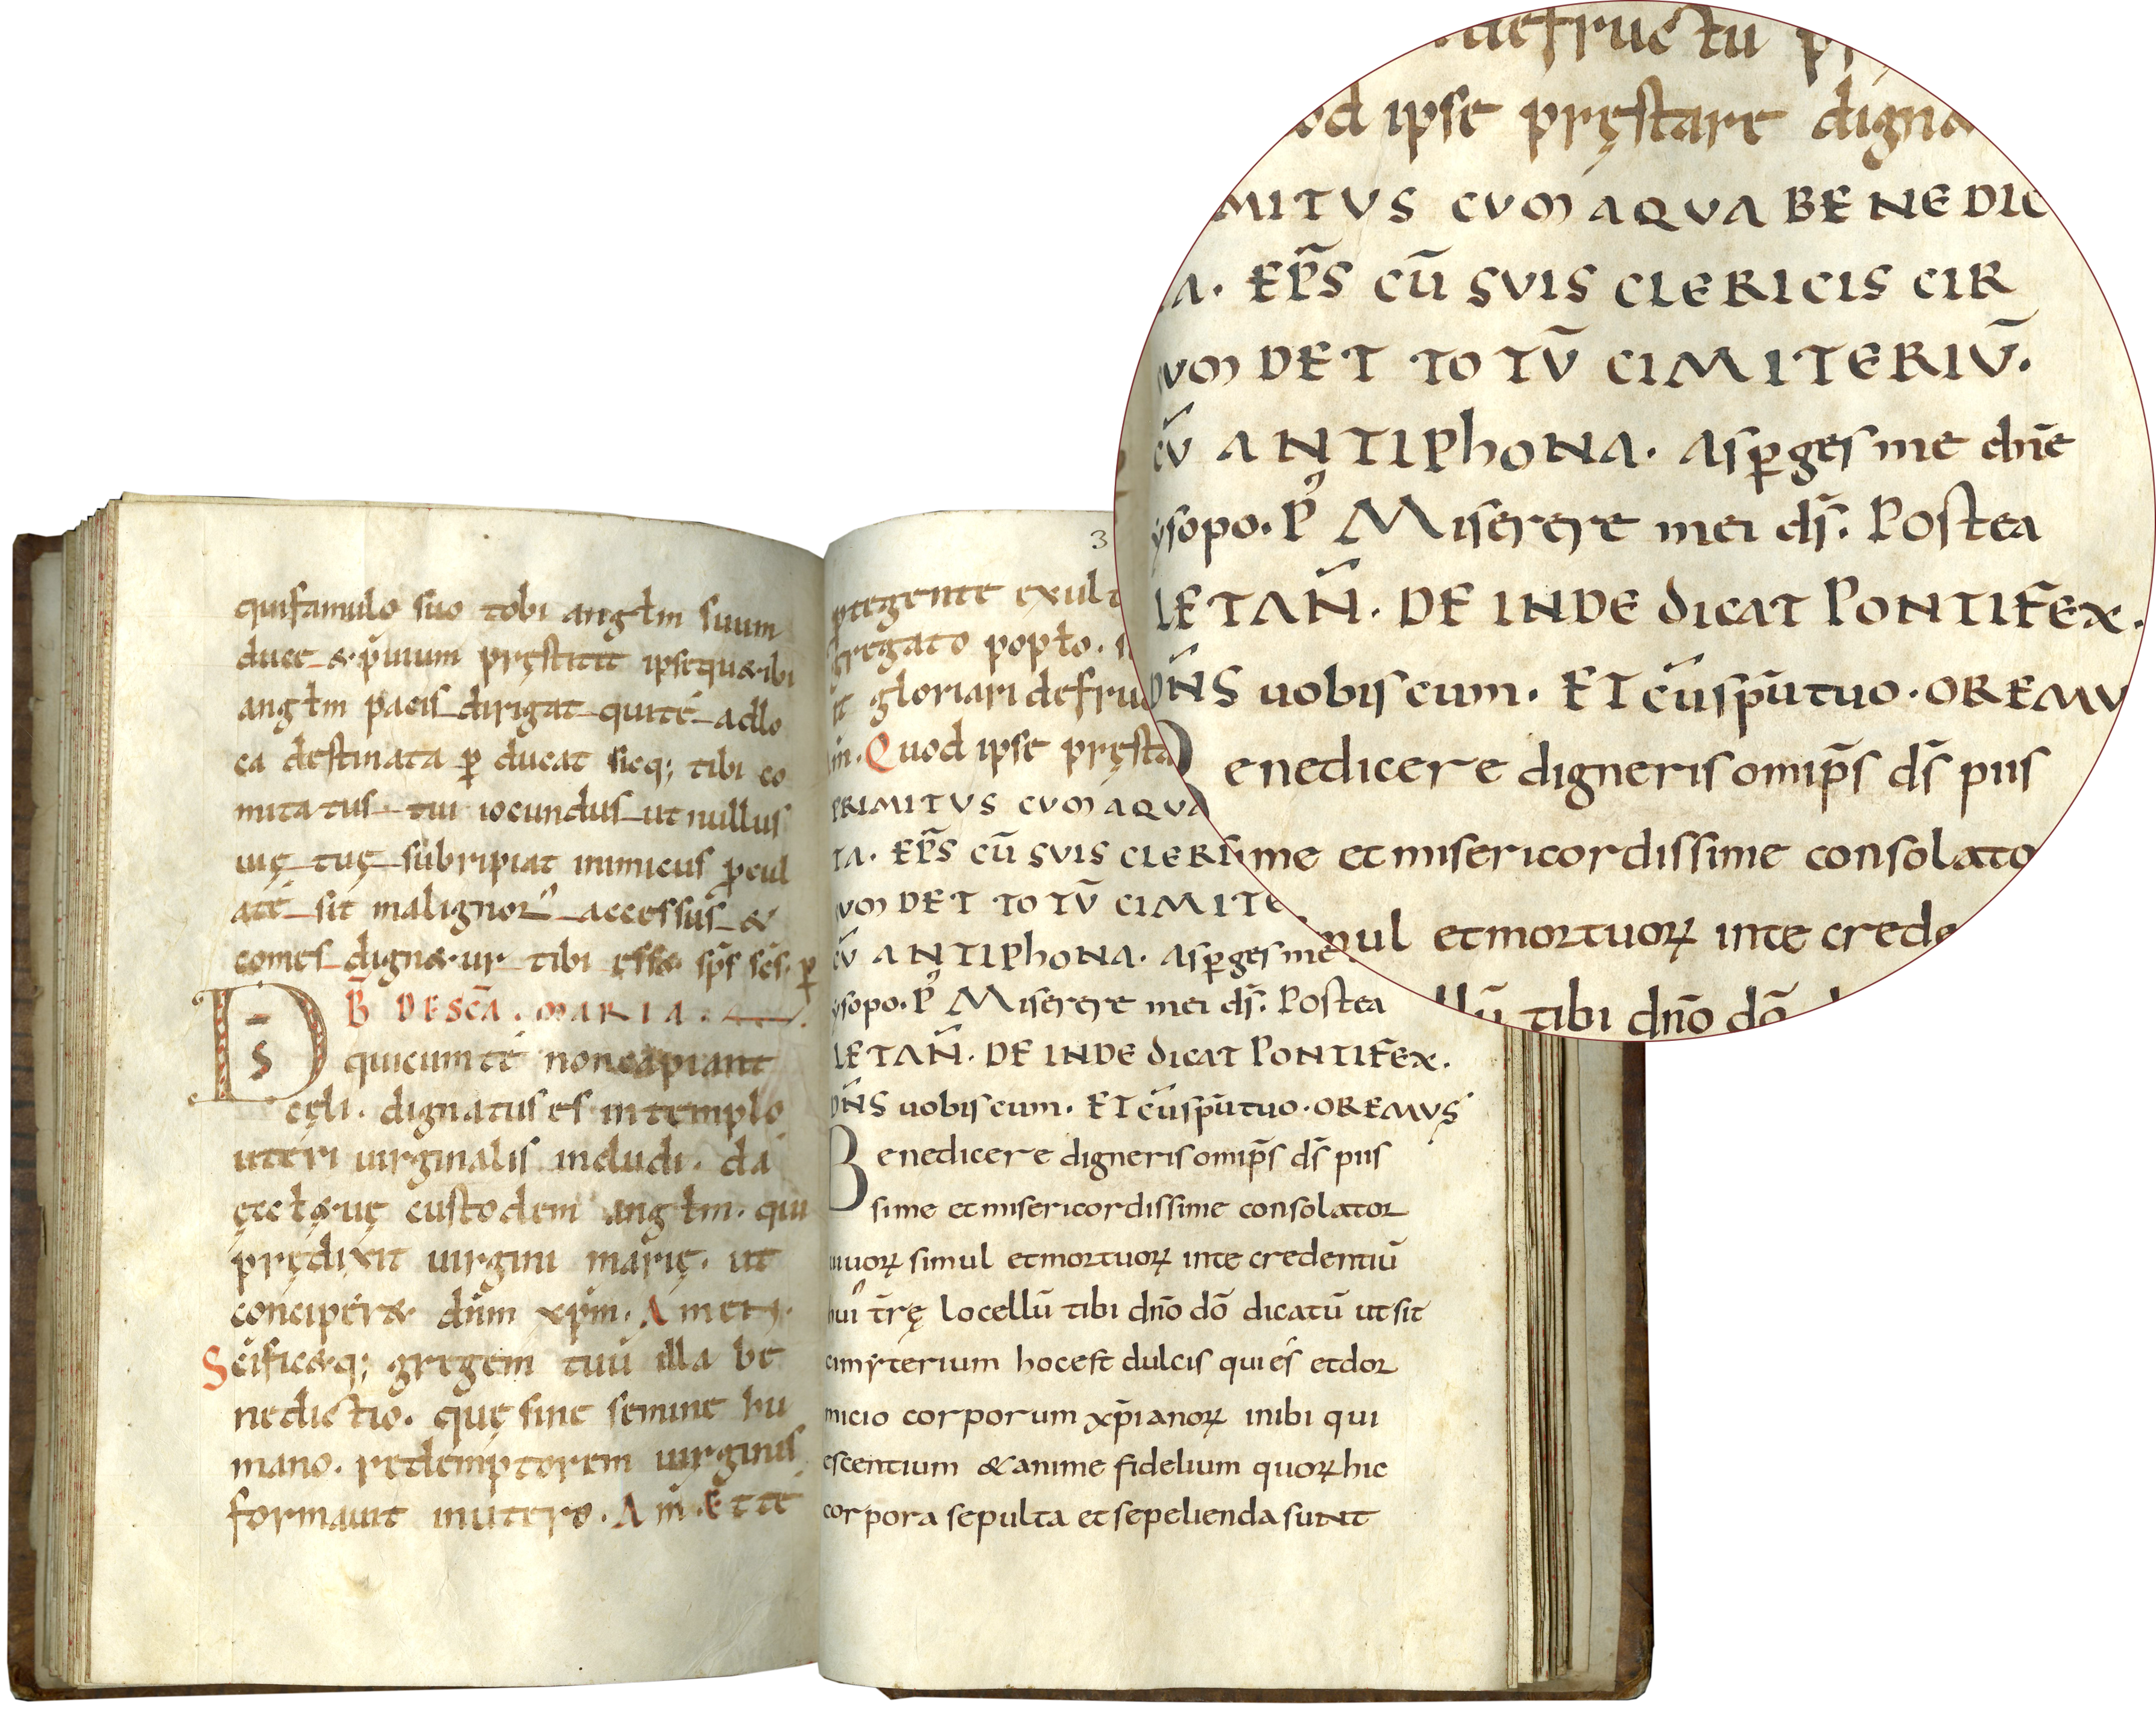 quifamulo suo tobi angłm suum
duce & p̄uium pręstitit ipsequ&ibi
angłm pacis dirigat quité adlo
ca destinata ꝑ ducat sicq; tibi co
mitatus tui iocundus ut nullus
uię tuę subripiat inimicus ꝓcul
a té sit malignoꝝ accessus &
comes dign&ur tibi ęss& sp̄s sc̄s ꝑ
B̄ DESCĀ. MARIA.
D̄S quicumté noncapiunt
cęli. dignatus es intemplo
uteri uirginalis includi. da
ęccł&uę custodem angłm. qui
prędixit uirgini marię. ut
conciper& dn̄m xp̄m. Amen.
Sc̄ific&q; gregem tuū illa be
nedictio. quę sine semine hu
mano. redemptorem uirginis
formauit inutero. Am̄. Et te
3
ptegente exult
gregato popło.
gloriari defructu
in. Quod ipse pręstare digna
PRIMITUS CUM AQUA BENEDIC
TA. EP̄S CŪ SUIS CLERICIS CIR
CUMDET TOTŪ CIMITERIŪ.
CŪ ANTIPhONA. Asꝑges me dn̄e
ysopo. P̄ Miserere mei ds̄. Postea
LETAÑ. DEINDE dicat PONTIFEX.
DN̄S uobiscum. ET cūsp̄utuo. OREMUS
Benedicere digneris omīp̄s ds̄ piis
sime et misericordissime consolator
uiuoꝝ simul etmortuoꝝ inte credentiū
hui᾽ t̄rę locellū tibi dn̄o dō dicatū ut sit
cimyterium hocest dulcis quiés etdor
micio corporum xp̄ianoꝝ inibi qui
escentium &anime fidelium quoꝝ hic
corpora sepulta et sepelienda sunt